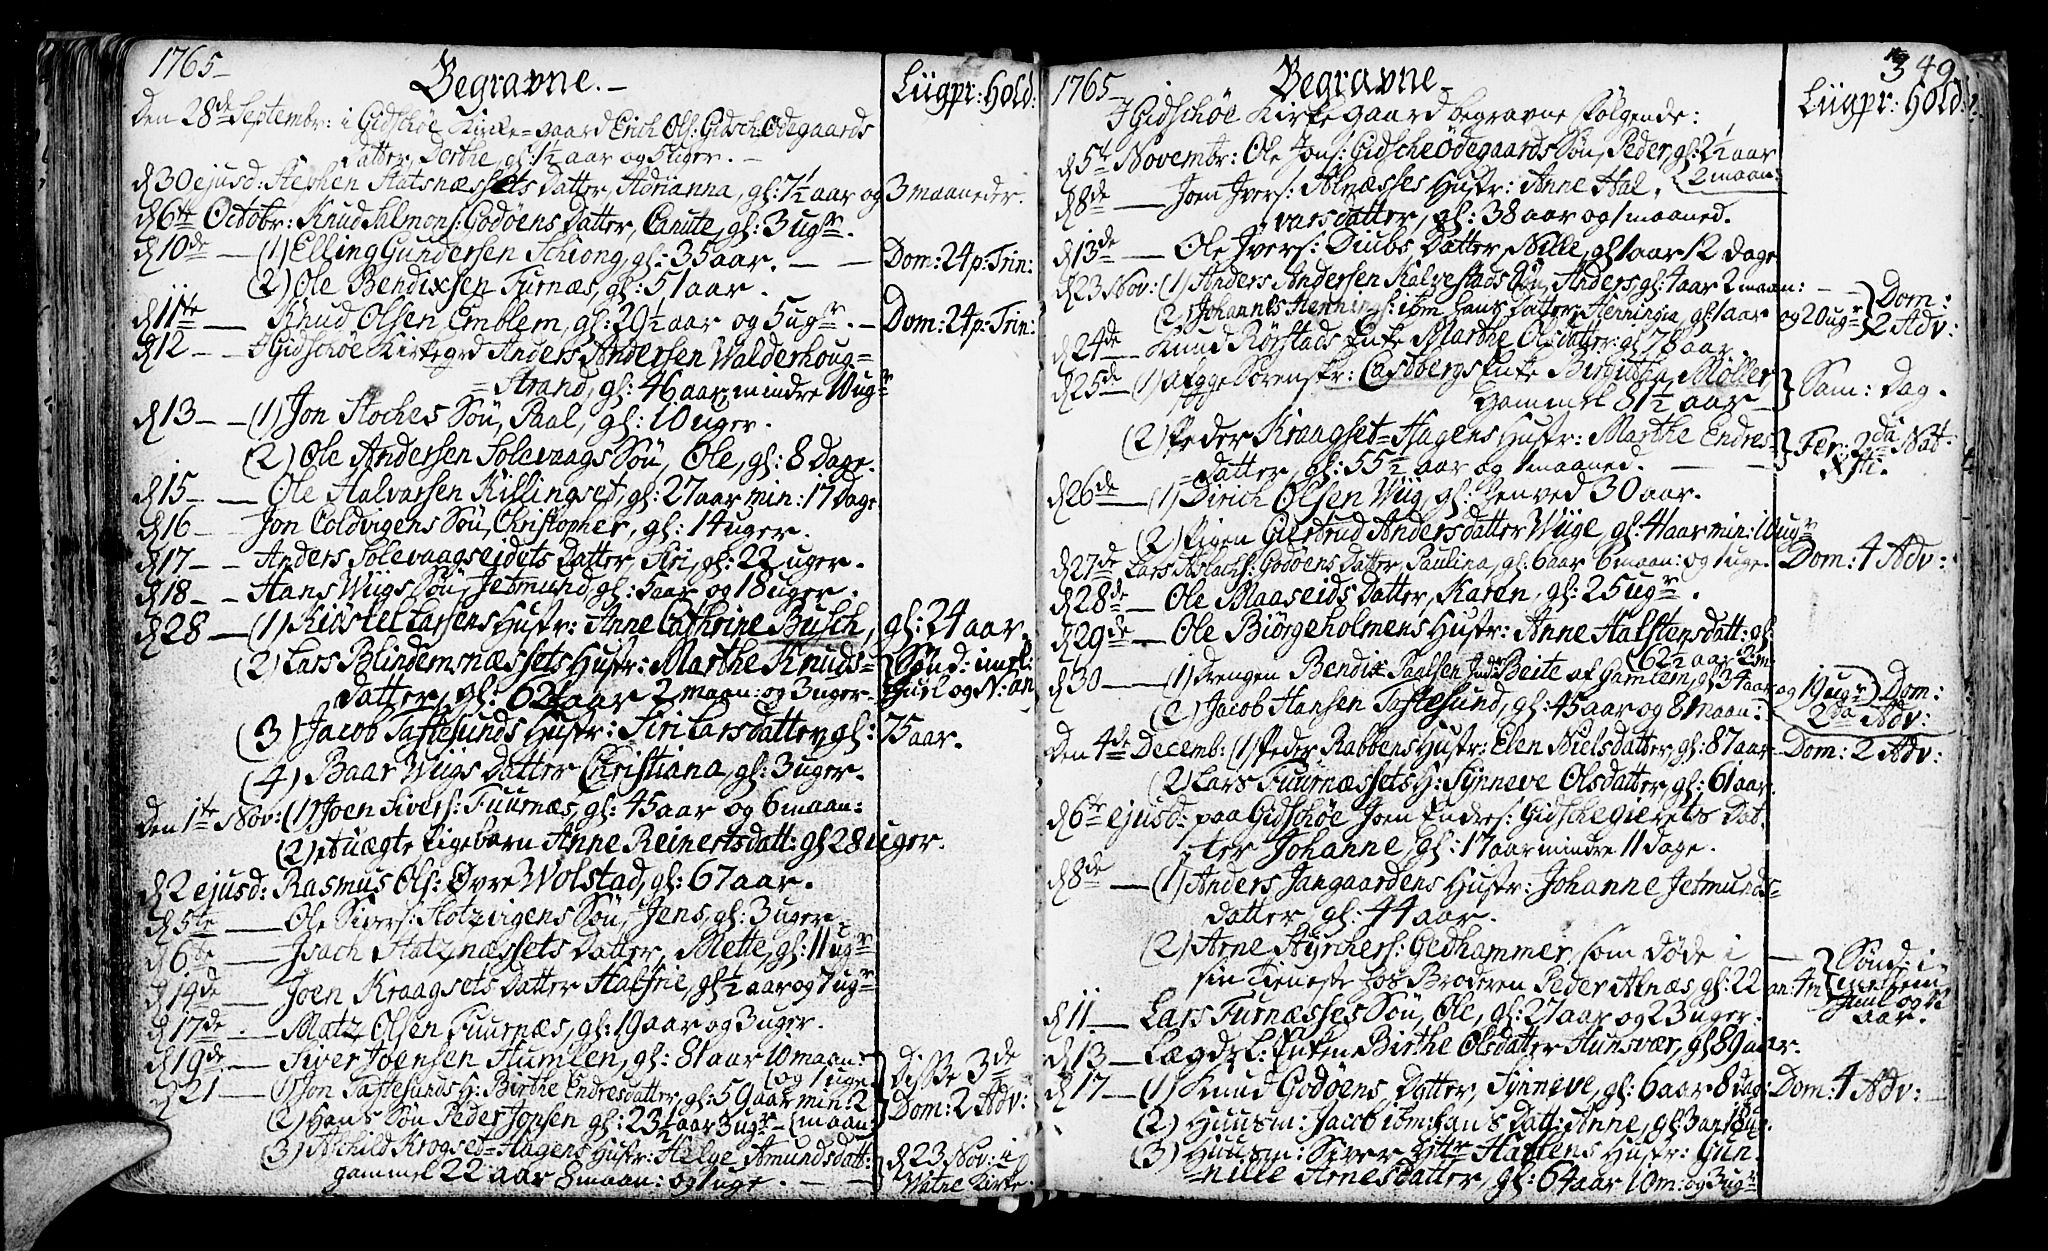 1765
Begravne.
Liigpr: Hold:
Den 28de Septembr: i Gidschöe Kirke-gaard Erich Ols: Gidsch-Ödegaards
Datter, Dorthe, gl: 1½ aar og 5 uger.
d 30 ejusd: Stephen Statsnæssets Datter, Adrianna, gl: 7½ aar og 3 maaneder.
d 6te Octobr: Knud Salmons: Godöens Datter, Canute, gl: 3 ugr.
d 10de (1) Elling Gundersen Schiong, gl: 35 aar. Dom: 24 p: Trin:
(2) Ole Bendixsen Furnæs, gl: 51 aar.
d 11te Knud Olsen Emblem, gl: 29½ aar og 5 ugr. Dom: 24 p: Trin:
d 12 I Gidschöe Kirkegrd Anders Andersen Walderhoug=
=Strand, gl: 46 aar, mindre 1 ugr
d 13 (1) Jon Stoches Sön, Paal, gl: 10 uger.
(2) Ole Andersen Solevaags Sön, Ole, gl: 8 Dage.
d 15 Ole Halvarsen Killingset, gl: 27 aar min: 17 Dage
d 16 Jon Coldvigens Sön, Christopher, gl: 14 uger.
d 17 Anders Solevaagseidets Datter, Siri, gl: 22 uger.
d 18 Hans Wiigs Sön, Jetmund, gl: 5 aar og 18 uger.
d 28 (1) Kiöstel Larsens Hustr: Anne Cathrine Busch, gl: 24 aar
(2) Lars Blindemsnæssets Hustr: Marthe Knuds=
datter, gl: 62 aar 2 maan: og 3 uger. Sönd: imel: Juul og N: an
(3) Jacob Taftesunds Hustr: Siri Larsdatter, gl: 75 aar.
(4) Baar Wiigs Datter Christiana, gl: 3 uger.
Den 1te Nov: (1) Joen Sivers: Fuurnæs, gl: 45 aar og 6 maan:
(2) et uægte Pigebarn Anne Reinertsdatt: gl 28 uger.
d 2 ejusd: Rasmus Ols: Övre Wolstad, gl: 67 aar.
d 5te Ole Sivers: Slotzvigens Sön, Jens, gl: 3 uger.
d 6te Isach Statznæssets Datter, Mette, gl: 11 ugr
d 14de Joen Kraagsets Datter Halfrie, gl ½ aar og 7 ugr
d 17de Matz Olsen Fuurnæs, gl: 19 aar og 3 uger.
d 19de Siver Joensen Humlen, gl: 81 aar 10 maan:
(og 1 uge.
d 21 (1) Jon Taftesunds H: Birthe Endresdatter, gl: 59 aar min: 2
(maan: Disse 3de
(2) Hans Sön Peder Jonsen gl: 23½ aar 3 ugr Dom: 2 Adv:
(3) Achild Krogset=Hagens Hustr: Helge Amundsdatt:
gammel 22 aar 8 maan: og 1 uge. d 23 Nov: i Watne Kirke.
1765
Begravne
Liigpr: Hold:
349
I Gidschöe Kirkegaard begravne fölgende:
d 5te Novembr: Ole Jons: Gidscheödegaards Sön, Peder, gl: 2½ aar
2 maan:
d 8de Joen Ivers: Alnæsses Hustr: Anne Hal=
varsdatter, gl: 38 aar og 1 maaned.
d 13de Ole Ivers: Diubs Datter, Nille, gl 1 aar 12 dage
d 23 Nov: (1) Anders Andersen Kalvestads Sön, Anders gl: 4 aar 2 maan:
(2) Johannes Hennings: ibm hans Datter Henningia, gl: 1 aar og 20 ugr Dom: 2 Adv:
d 24de Knud Rörstads Enke Marthe Olsdatter: gl 78 aar
d 25de (1) Sorenskr: Carlsbergs Enke Birgitta Möller
Gammel 81½ aar Sam: Dag.
(2) Peder Kraagset=Hagens Hustr: Marthe Endres=
datter, gl: 55½ aar og 1 maaned. Fer: 2da Nat: Xsti.
d 26de (1) Dirich Olsen Wiig, gl: henved 30 aar.
(2) Pigen Giertrud Andersdatter Wiige, gl: 41 aar min: 10 ugr
d 27de Lars Aslachs: Godöens Datter, Paulina, gl: 6 aar 6 maan: og 1 uge. Dom: 4 Adv:
d 28de Ole Maaseids Datter, Karen, gl: 25 ugr.
d 29de Ole Biörgeholmens Hustr: Anne Halstensdatt: gl:
62½ aar 2 m
d 30 (1) Drengen Bendix Paalsen Beite af Gamlem, gl 34 aar og 19 ugr Dom: 2da Adv:
(2) Jacob Hansen Taftesund, gl: 45 aar og 8 maan:
Den 4de Decemb: (1) Peder Rabbens Hustr: Elen Nielsdatter, gl: 87 aar. Dom: 2 Adv:
(2) Lars Fuurnæssets H: Synneve Olsdatter, gl: 61 aar.
d 6te ejusd: paa Gidschöe Joen Endres: Gidschegierets Dat=
ter Johanne, gl: 17 aar mindre 11 dage.
d 8de (1) Anders Jangaardens Hustr: Johanne Jetmunds=
datter, gl: 44 aar.
(2) Arne Styrchers: Gedhammer, som döde i
sin Tieneste hos Broderen Peder Alnæs gl: 22 an: 4 m Sönd: i mellem Juul og N aar.
d 11 Lars Furnæsses Sön, Ole, gl: 27 aar og 23 uger.
d 13 Lægdsl: Enken Birthe Olsdatter Hunsvær, gl 89 aar.
d 17 (1) Knud Godöens Datter, Synneve, gl: 6 aar 8 dag: Dom: 4 Adv:
(2) Huusm: Jacob ibm: hans Datt: Anne, gl: 3 aar 18 u
(3) Huusm: Siver Hartens Hustr: Gun=
nille Arnesdatter, gl: 64 aar 10 m: og 3 ugr